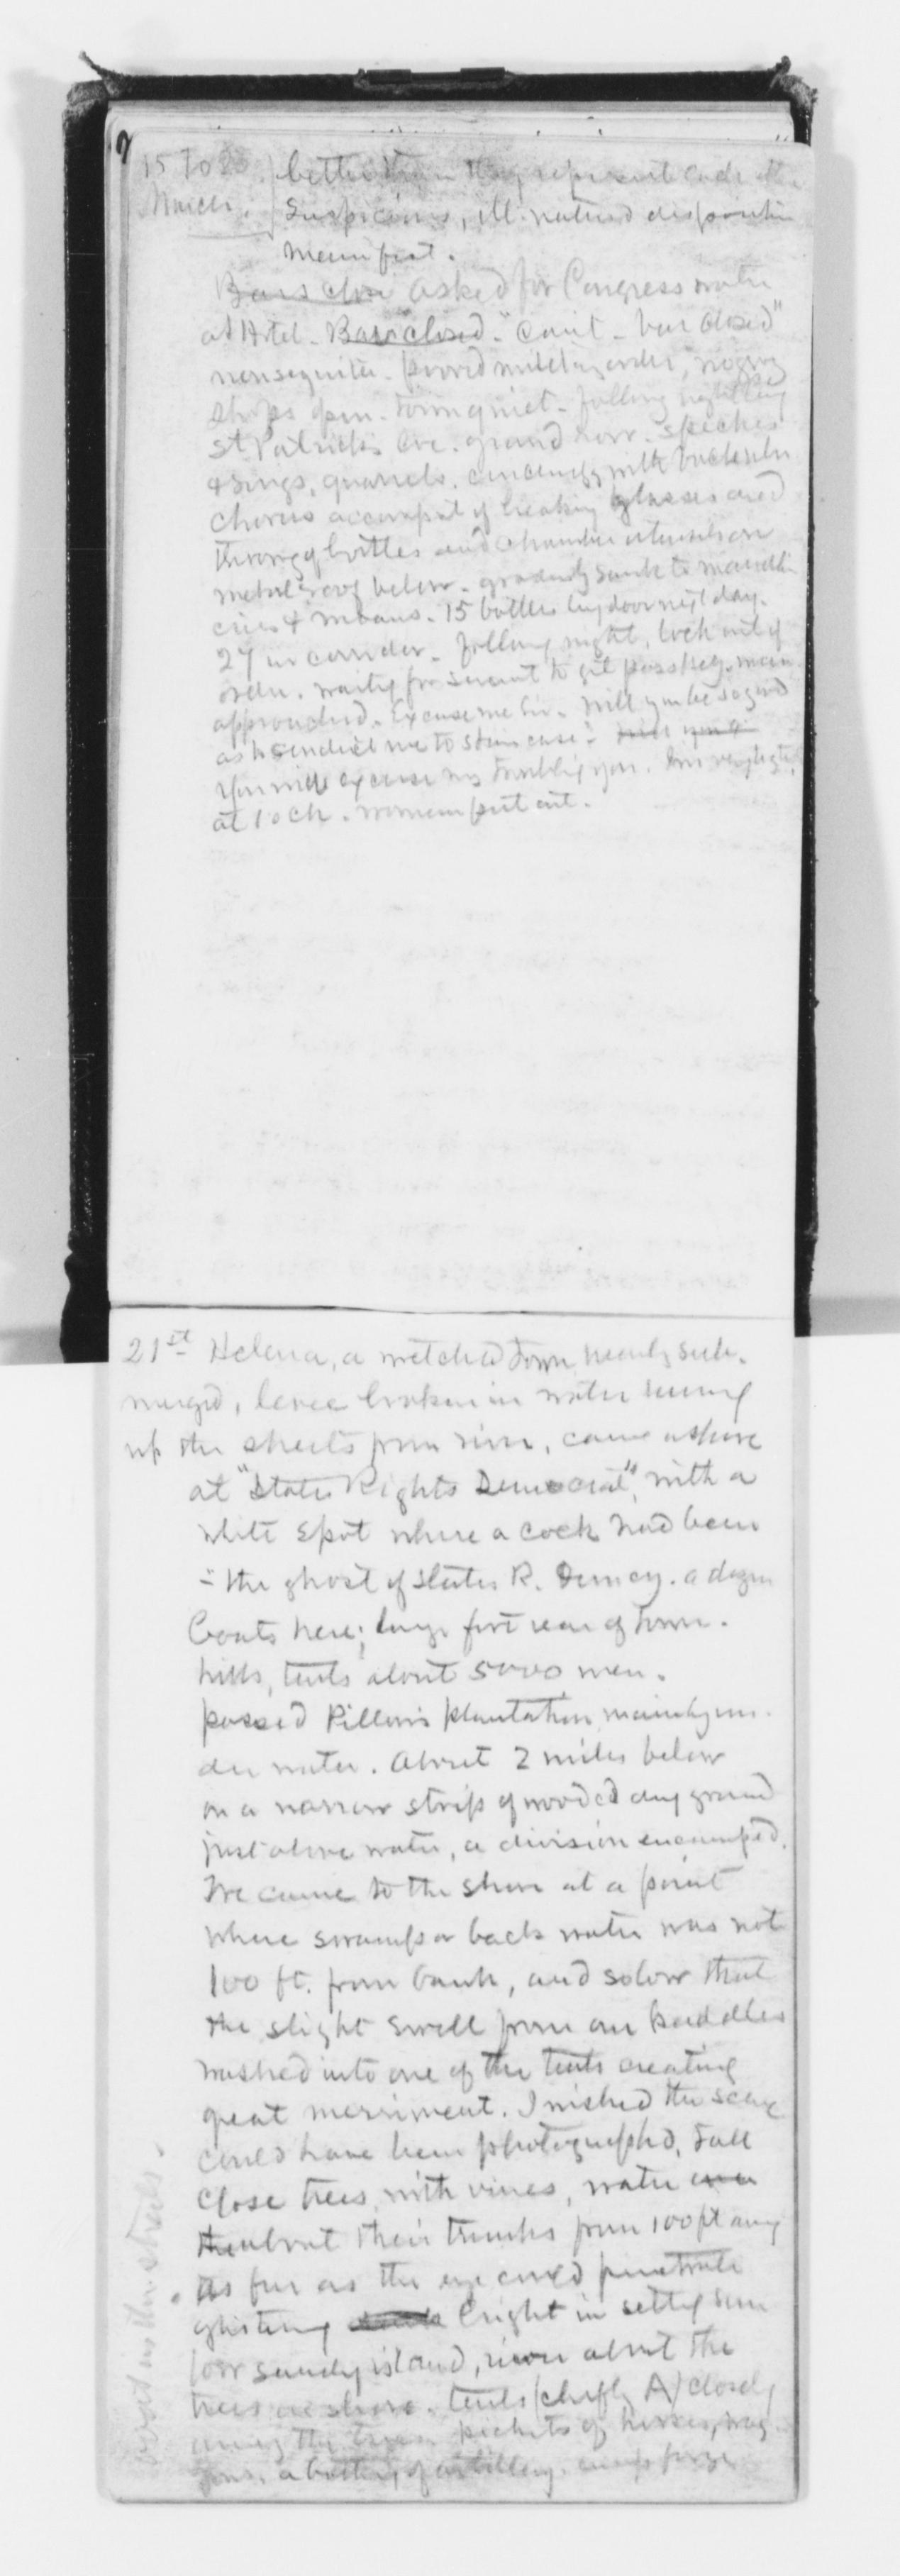 15 to 20 March.
better than they represent and the
suspicious, ill-natured disposition
manifest.
Bar's close asked for Congress water
at Hotel - Bar closed. "Can't - bar closed"
nonsequitur. proved military order, no grog
shops open. Town quiet. following night being
St Patricks Eve. grand row. speeches
& songs, quarrels.
chorus accompd of breaking glasses and
throwing of bottles and chamber utensils on
metal roof below. gradually sank to maudlin
cries & moans. 15 bottles by door next day.
27 in corridor. following night, lock out of
order. waiting for servant to get pass key. man
approached. Excuse me Sir. Will you be so good
as to conduct me to stair case?
You will excuse my troubling you.
at 1 o'ck. woman put out.
21st Helena, a wretched town nearly sub-
merged, levee broken in water running
up the streets from river, came ashore
at "States Rights Democrat", with a
white spot where a cock had been
- the ghost of States R. Democy. a dozen
boats here; large fort rear of town.
hills, tents about 5000 men.
passed Pillow's plantation mainly un-
der water. About 2 miles below
on a narrow strip of wooded dry ground
just above water, a division encamped.
We came to the shore at a point
where swamp or back water was not
100 ft. from bank, and so low that
the slight swell from our paddles
washed into one of the tents creating
great merriment. I wished the scene
could have been photographed, tall
close trees, with vines, water
the about their trunks from 100 ft away
as far as the eye could penetrate
glistening bright in setting sun
low sandy island, river about the
trees on shore. tents (chiefly A) closely
among the trees. pickets of horses, wag-
gons, a battery of artillery. camp forge